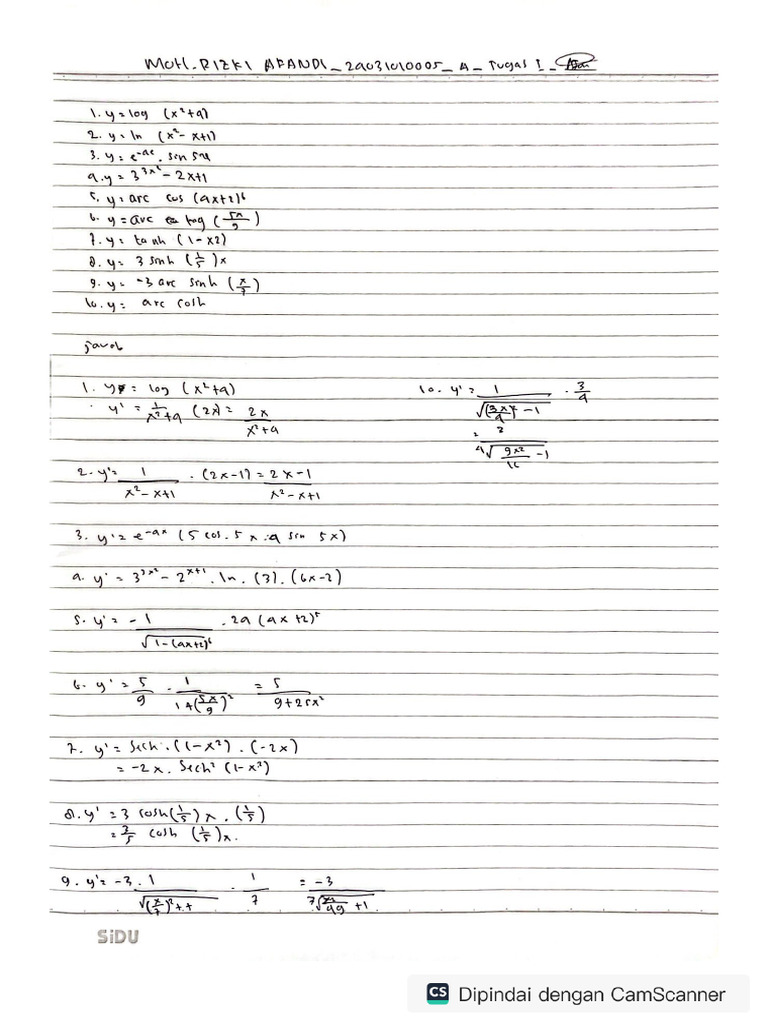 MOH. RIZKI AFANDI_24031010005_A_Tugas 1_
1. y = log (x²+4)
2. y = ln (x²- x+1)
3. y = e^-4x . sin 5x
4. y = 3^3x² - 2x+1
5. y = arc cos (4x+2)⁶
6. y = arc tog (5x/9)
7. y = tanh (1-x2)
8. y = 3 sinh (1/5)x
9. y = -3 arc sinh (x/7)
10. y = arc cosh
jawab
1. y = log (x²+4)
y' = 1/x²+4 (2x) = 2x/x²+4
2. y' = 1/x²-x+1 . (2x-1) = 2x-1/x²-x+1
3. y' = e^-4x (5 cos. 5x - 4 sin 5x)
4. y' = 3^3x² - 2^x+1 . ln. (3). (6x-2)
5. y' = - 1/√1-(4x+2)⁶ . 24 (4x+2)⁵
6. y' = 5/9 . 1/1+(5x/9)² = 5/9+25x²
7. y' = Sech . (1-x²) . (-2x)
= -2x . Sech² (1-x²)
8. y' = 3 cosh (1/5)x . (1/5)
= 3/5 cosh (1/5)x.
9. y' = -3 . 1/√(x/7)²++ . 1/7 = -3/7√x²/49 +1
10. y' = 1/√(3x/4)² -1 . 3/4
= 3/4√9x²/16 -1
SiDU
CS Dipindai dengan CamScanner